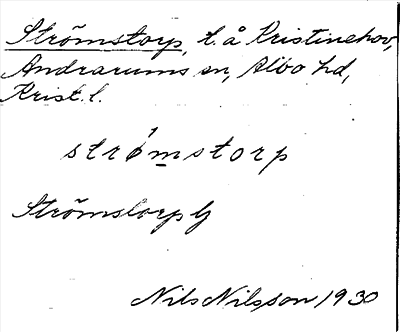 Strömstorp, t. å Kristinehov,
Andrarums sn, Albo hd,
Krist. l.
strömstorp
Strömstorp G
Nils Nilsson 1930